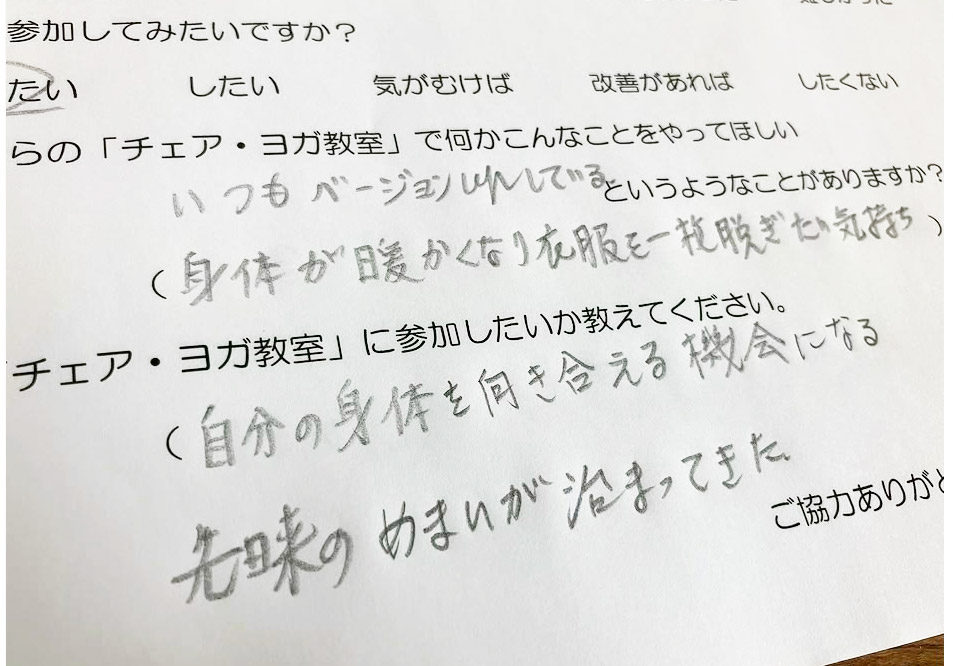 参加してみたいですか?
たい したい 気がむけば 改善があれば したくない
らの「チェア・ヨガ教室」で何かこんなことをやってほしい
いつもバージョンupしている。
というようなことがありますか?
(身体が暖かくなり衣服を一枚脱ぎたい気持ち)
「チェア・ヨガ教室」に参加したいか教えてください。
(自分の身体を向き合える機会になる
先日来のめまいが治まってきた。
ご協力ありがと